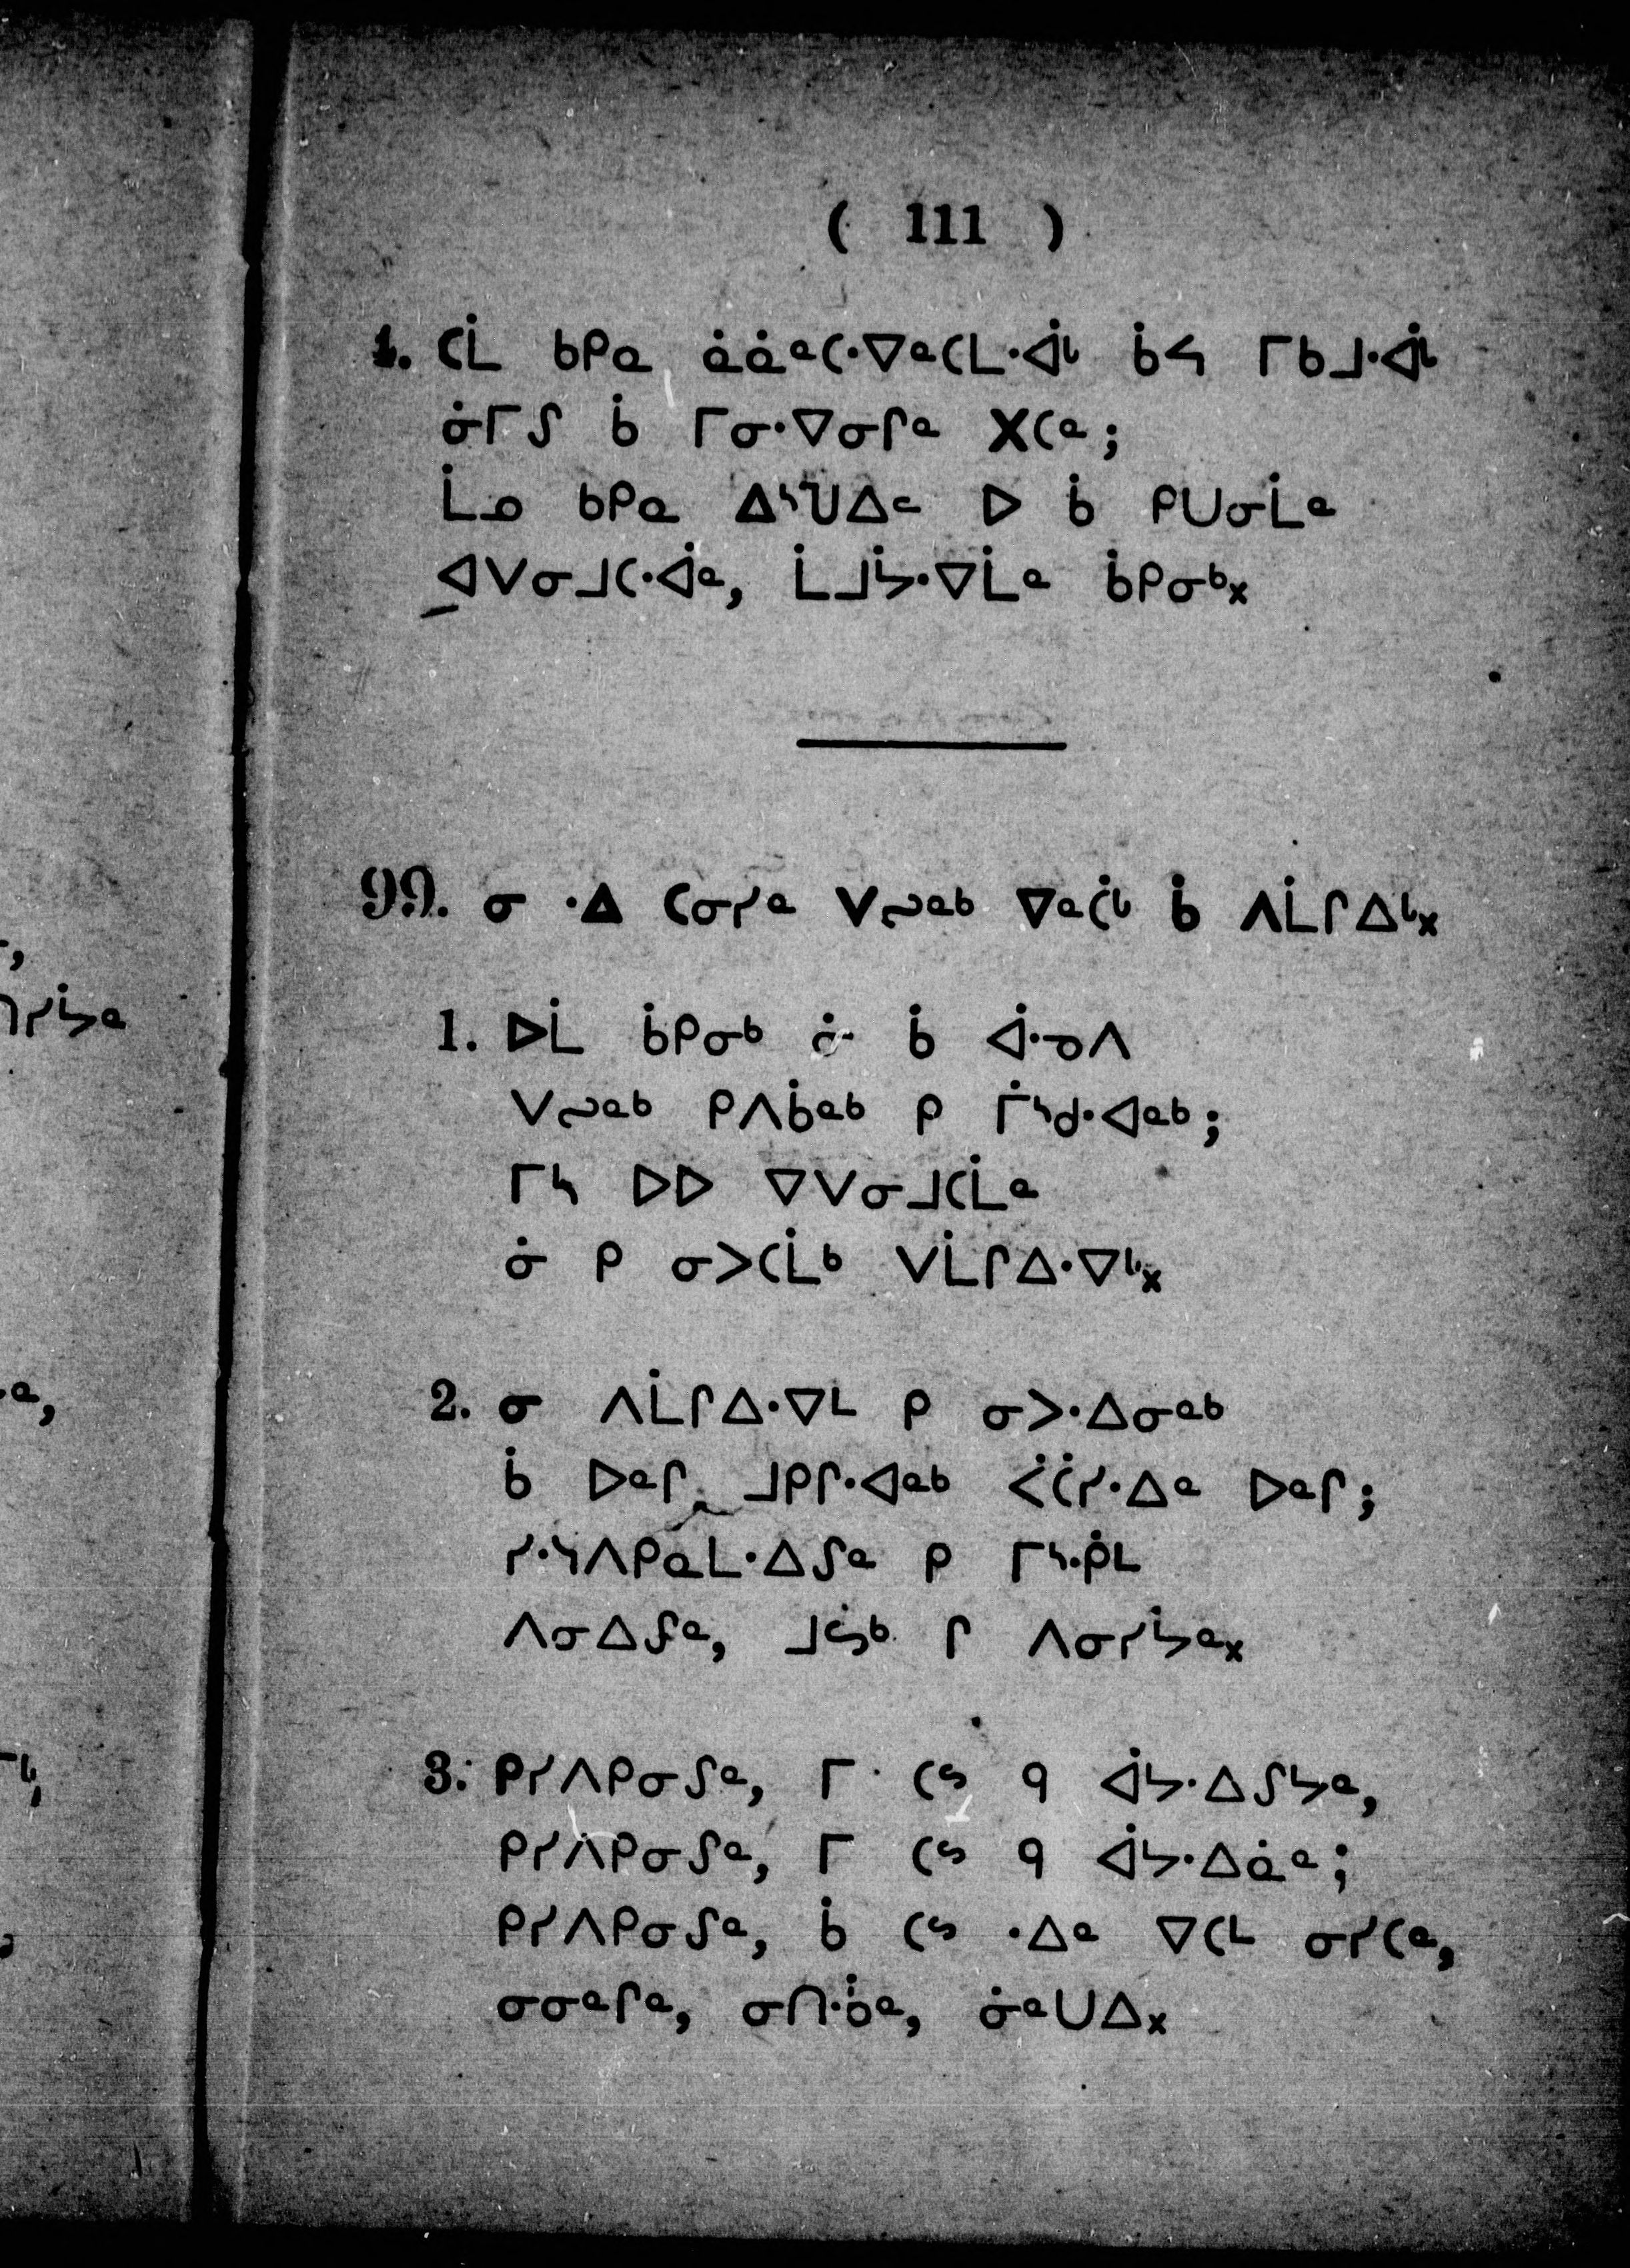 ( 111 )
1. ᑕᒫ ᑲᑭᓇ ᓈᓈᓐᑕᐧᐁᓐᑕᒪᐧᐋᒡ ᑳᓴ ᒥᑲᒧᐧᐋᒡ
ᓃᒥᔑ ᑳ ᒥᓂᐧᐁᓂᒋᓐ ᕽᑕᓐ;
ᒫᓄ ᑲᑭᓇ ᐃᔥᑌᐃᓪ ᐅ ᑳ ᑭᑌᓂᒫᓐ
ᐊᐯᓂᒧᑕᐧᐋᓐ, ᒫᒧᔮᐧᐁᒫᓐ ᑳᑭᓂᒃ᙮
99. ᓂ ᐧᐃ ᑕᓂᓯᓐ ᐯᔓᓐᒃ ᐁᓐᑖᒡ ᑳ ᐱᒫᒋᐃᒡ᙮
1. ᐅᒫ ᑳᑭᓂᒃ ᓃ ᑳ ᐋᐧᓄᐱ
ᐯᔓᓐᒃ ᑭᐱᑳᓐᒃ ᑭ ᒦᔅᑯᐧᐊᓐᒃ;
ᒥᓴ ᐅᐅ ᐁᐯᓂᒧᑕᒫᓐ
ᓃ ᑭ ᓂᐳᑕᒫᒃ ᐯᒫᒋᐃᐧᐁᒡ᙮
2. ᓂ ᐱᒫᒋᐃᐧᐁᒻ ᑭ ᓂᐳᐧᐃᓂᓐᒃ
ᑳ ᐅᓐᒋ ᒧᑭᒋᐧᐊᓐᒃ ᐹᑖᓯᐧᐃᓐ ᐅᓐᒋ;
ᓯᐧᓴᐱᑭᓇᒪᐧᐃᔑᓐ ᑭ ᒥᔅᐧᑮᒻ
ᐱᓂᐃᔑᓐ, ᒧᔕᒃ ᒋ ᐱᓂᓯᔮᓐ᙮
3. ᑭᓯᐱᑭᓂᔑᓐ, ᒥ ᑕᔥ ᑫ ᐋᔭᐧᐃᔑᔭᓐ,
ᑭᓯᐱᑭᓂᔑᓐ, ᒥ ᑕᔥ ᑫ ᐋᔭᐧᐃᓈᓐ;
ᑭᓯᐱᑭᓂᔑᓐ, ᑳ ᑕᔥ ᐧᐃᓐ ᐁᑕᒻ ᓂᓯᑕᓐ,
ᓂᓂᓐᒋᓐ, ᓂᑎᐧᑳᓐ, ᓃᓐᑌᐃ᙮